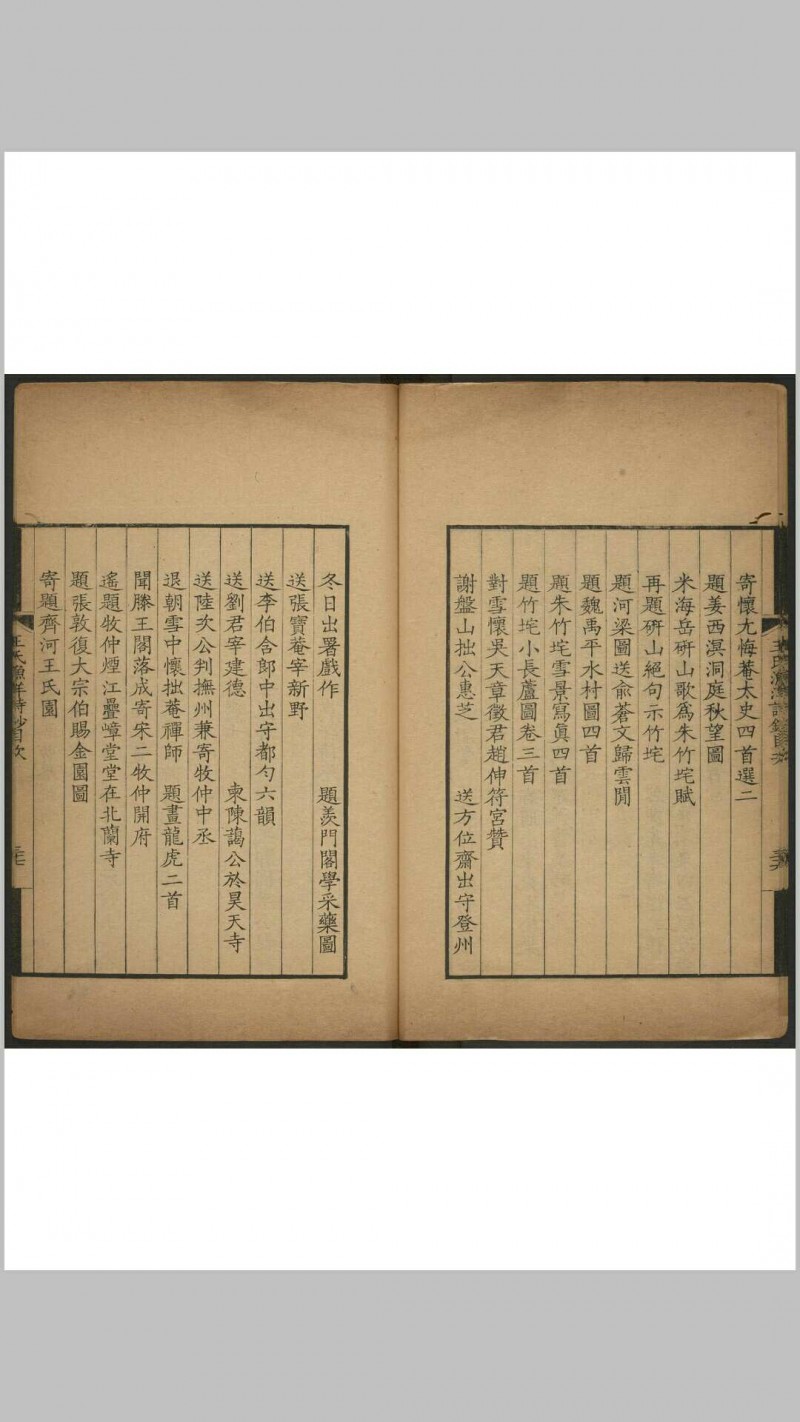 寄懷尤悔菴太史四首選二
題姜西溟洞庭秋望圖
米海岳硏山歌爲朱竹垞賦
再題硏山絕句示竹垞
題河梁圖送俞蒼文歸雲閒
題魏禹平水村圖四首
題朱竹垞雪景寫眞四首
題竹垞小長蘆圖卷三首
對雪懷吳天章徵君趙伸符宮贊
謝盤山拙公惠芝　送方位齋出守登州
冬日出署戲作　題羨門閣學采藥圖
送張寶菴宰新野
送李伯含郎中出守都勻六韻
送劉君宰建德　柬陳藹公於昊天寺
送陸次公判撫州兼寄牧仲中丞
退朝雪中懷拙菴禪師　題畫龍虎二首
聞滕王閣落成寄宋二牧仲開府
遙題牧仲煙江疊嶂堂堂在北蘭寺
題張敦復大宗伯賜金園圖
寄題齊河王氏園
王氏漁洋詩鈔目次